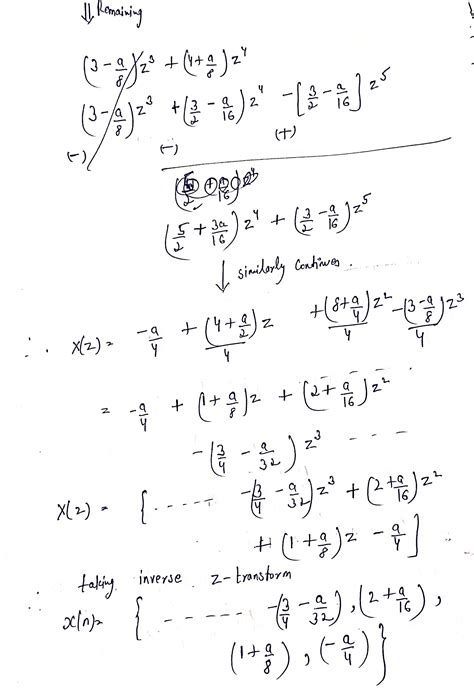 ⇓ Remaining
(3 - a/8) z³ + (4 + a/8) z⁴
(3 - a/8) z³ + (3/2 - a/16) z⁴ - [3/2 - a/16] z⁵
(-) (-) (+)
(5/2 + 3a/16) z⁴ + (3/2 - a/16) z⁵
↓ similarly continues.
∴ X(z) = -a/4 + (4 + a/2)/4 z + (8 + a/4)/4 z² - (3 - a/8)/4 z³
= -a/4 + (1 + a/8) z + (2 + a/16) z²
- (3/4 - a/32) z³ - - - -
X(z) = { ------ -(3/4 - a/32) z³ + (2 + a/16) z²
+ (1 + a/8) z - a/4 ]
∴ taking inverse z-transform
x(n) = { ------ -(3/4 - a/32), (2 + a/16),
(1 + a/8), (-a/4) }